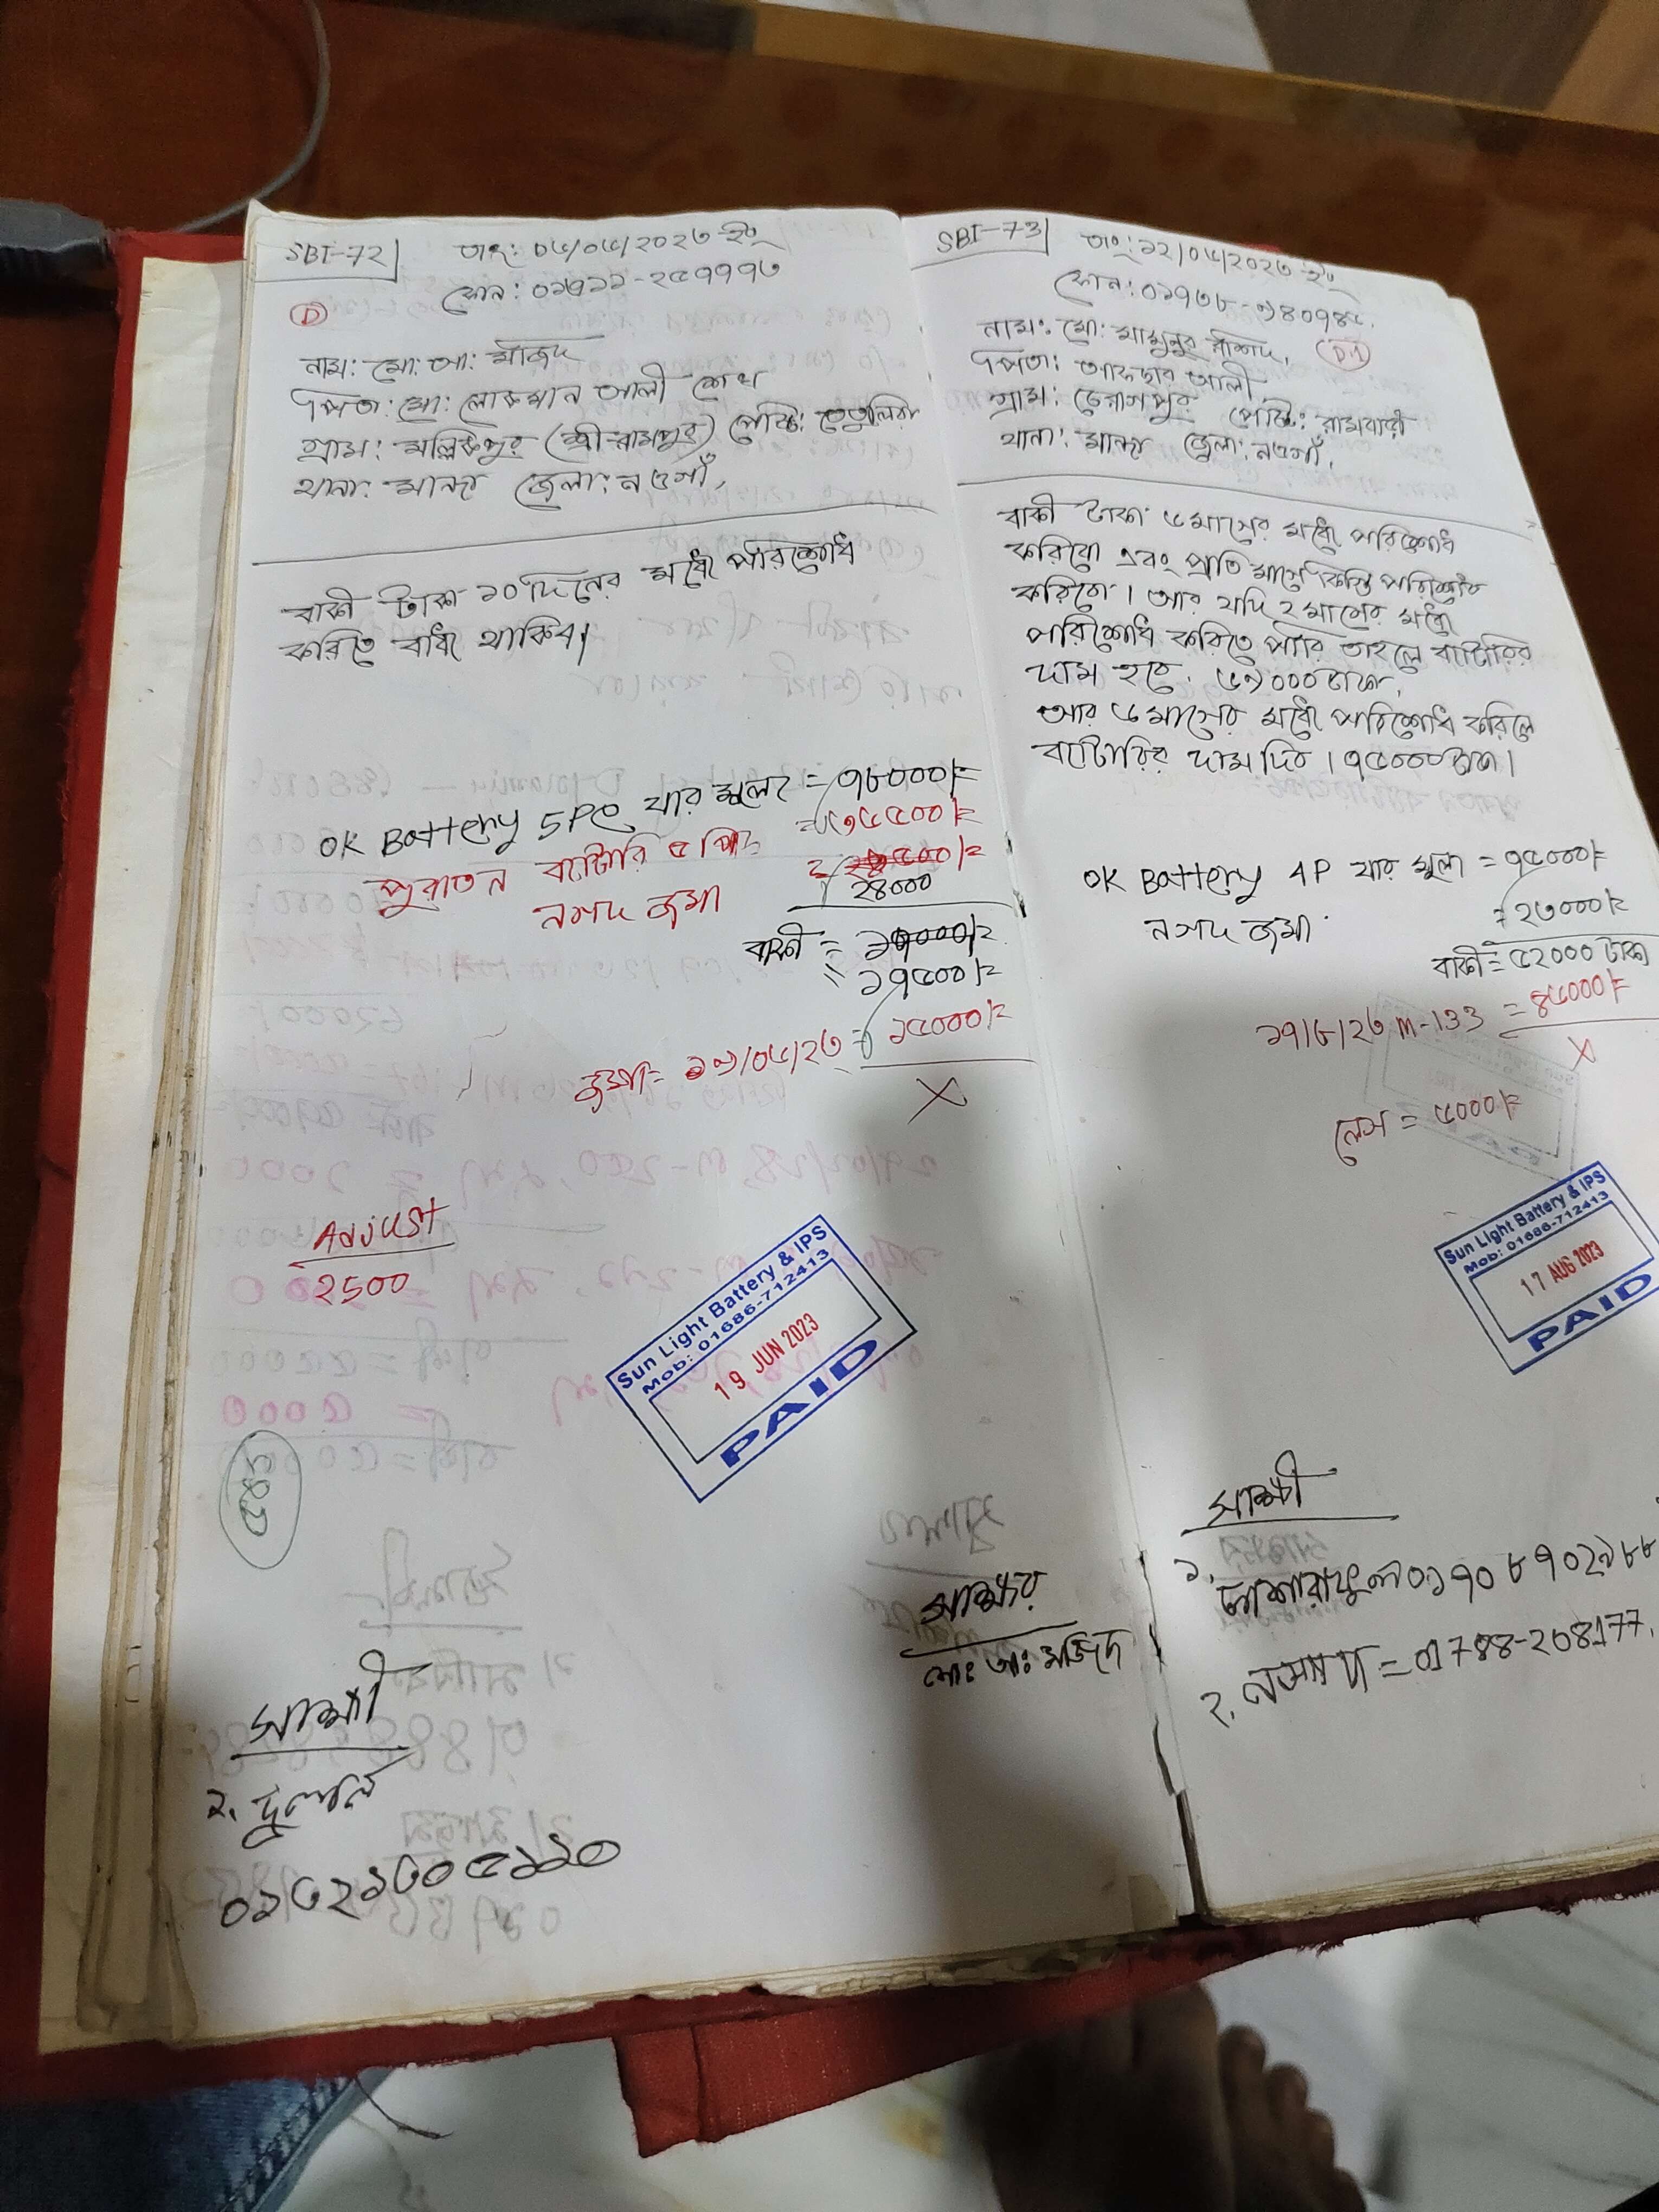 SBI-72
তাং: ০৬/০৬/২০২৩ ইং
ফোন: ০১৩১১-২৫৭৭৭৩
D
নাম: মো: আ: মজিদ
পিতা: মো: লোকমান আলী শেখ
গ্রাম: মল্লিকপুর (শ্রীরামপুর) পোষ্ট: তেতুলিয়া
থানা: মান্দা জেলা: নওগাঁ,
বাকী টাকা ১০দিনের মধ্যে পরিশোধ
করিতে বাধ্য থাকিব।
OK Battery 5Pc যার মূল্য = ৭৮০০০/=
পুরাতন ব্যাটারি ৫ পিচ = ৩৬৫০০/=
নগদ জমা
২৪০০০
বাকী =
= ১৭৫০০/=
জমা= ১৯/০৬/২৩ = ১৫০০০/=
X
Adjust
2500
Sun Light Battery & IPS
Mob: 01686-712413
19 JUN 2023
PAID
সাক্ষর
মো: আ: মজিদ
সাক্ষী
২. দুলাল
SBI-73
তাং: ১২/০৬/২০২৩ ইং
D.1
নাম: মো: মামুনুর রশিদ,
পিতা: আফছার আলী
গ্রাম: ভেরাগপুর পোষ্ট: রামবাড়ী
থানা: মান্দা জেলা: নওগাঁ,
বাকী টাকা ৬মাসের মধ্যে পরিশোধ
করিবো এবং প্রতি মাসে কিস্তি পরিশোধ
করিবো। আর যদি ২ মাসের মধ্যে
পরিশোধ করিতে পারি তাহলে ব্যাটারির
দাম হবে ৬৯০০০ টাকা,
আর ৬মাসের মধ্যে পরিশোধ করিলে
ব্যাটারির দাম দিব। ৭৫০০০ টাকা।
OK Battery 4P যার মূল্য = ৭৫০০০/=
নগদ জমা = ২৩০০০/=
বাকী= ৫২০০০ টাকা
১৭/৮/২৩ M-133 = ৪৬০০০/=
X
লেস = ৬০০০/=
Sun Light Battery & IPS
Mob: 01686-712413
17 AUG 2023
PAID
সাক্ষী
১. আশরাফুল ০১৭০৮৭০২৯৮৮
২. নওশাদ = 01788-208177.